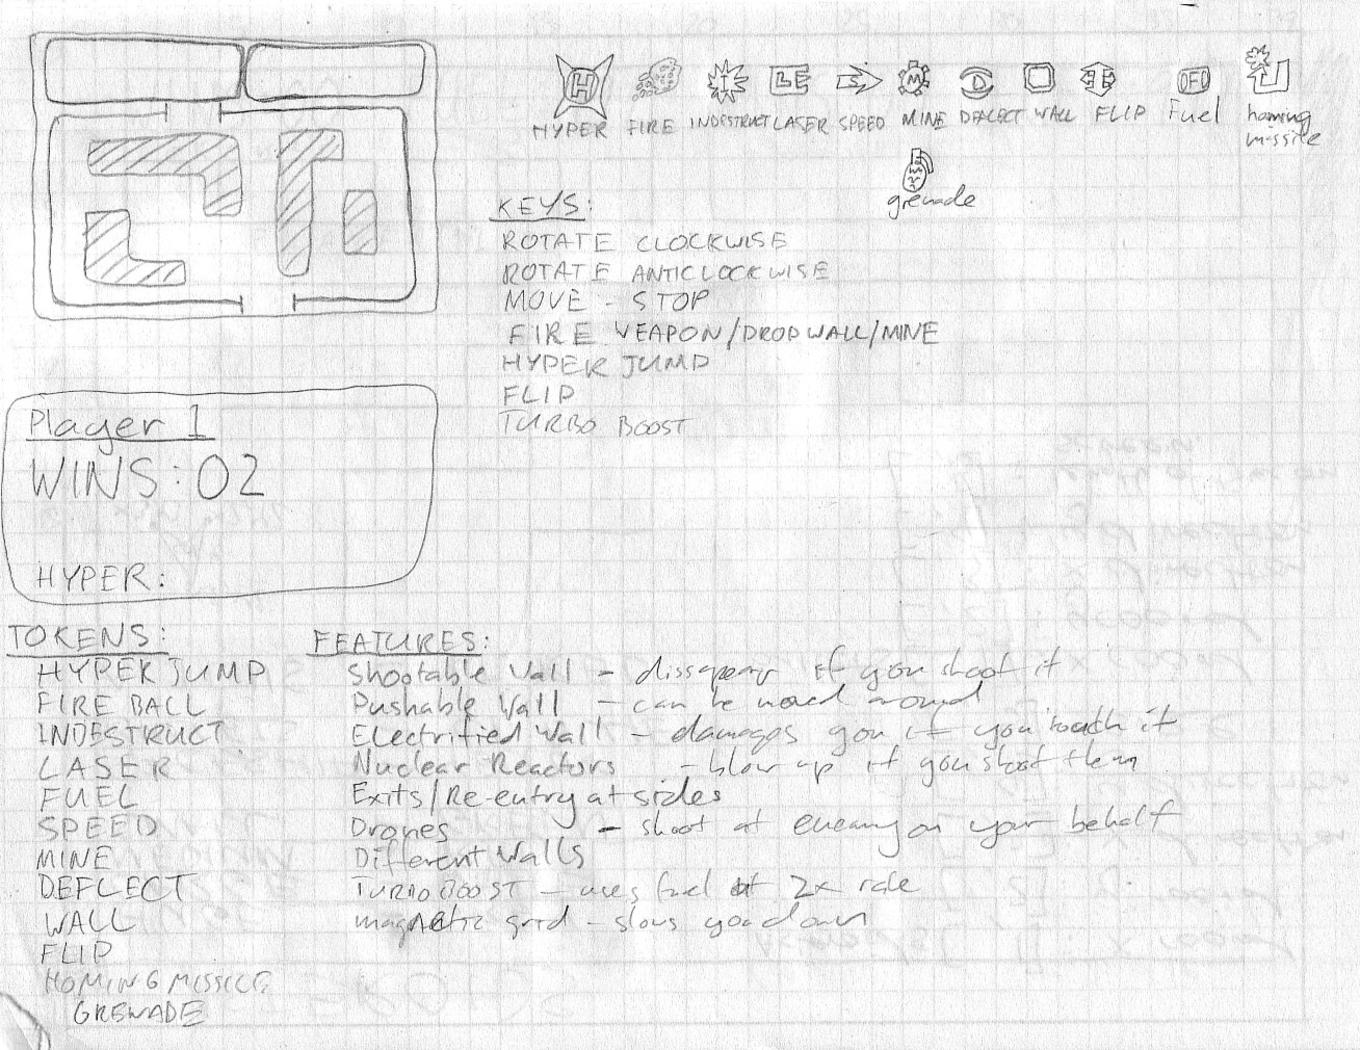 H I LE M D F OFO
HYPER FIRE INDESTRUCT LASER SPEED MINE DEFLECT WALL FLIP Fuel homing missile
grenade
KEYS:
ROTATE CLOCKWISE
ROTATE ANTICLOCKWISE
MOVE - STOP
FIRE WEAPON/DROP WALL/MINE
HYPER JUMP
FLIP
TURBO BOOST
Player 1
WINS: 02
HYPER:
TOKENS:
HYPER JUMP
FIRE BALL
INDESTRUCT
LASER
FUEL
SPEED
MINE
DEFLECT
WALL
FLIP
HOMING MISSILE
GRENADE
FEATURES:
Shootable Wall - dissapears if you shoot it
Pushable Wall - can be moved around
Electrified Wall - damages you if you touch it
Nuclear Reactors - blow up if you shoot them
Exits/Re-entry at sides
Drones - shoot at enemy on your behalf
Different Walls
TURBO BOOST - uses fuel at 2x rate
magnetic grid - slows you down